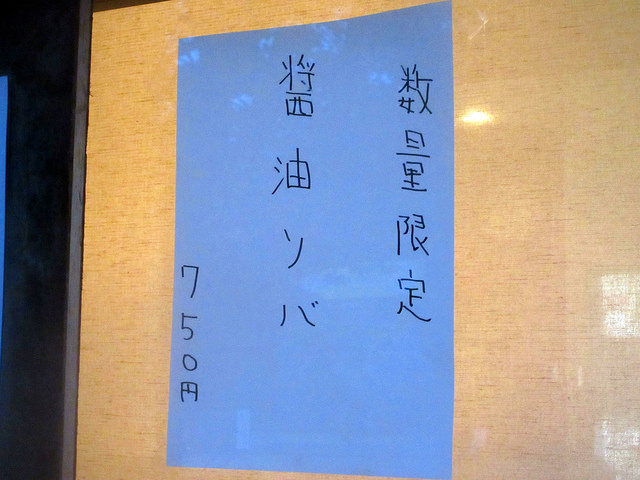 数量限定
醤油ソバ
750円